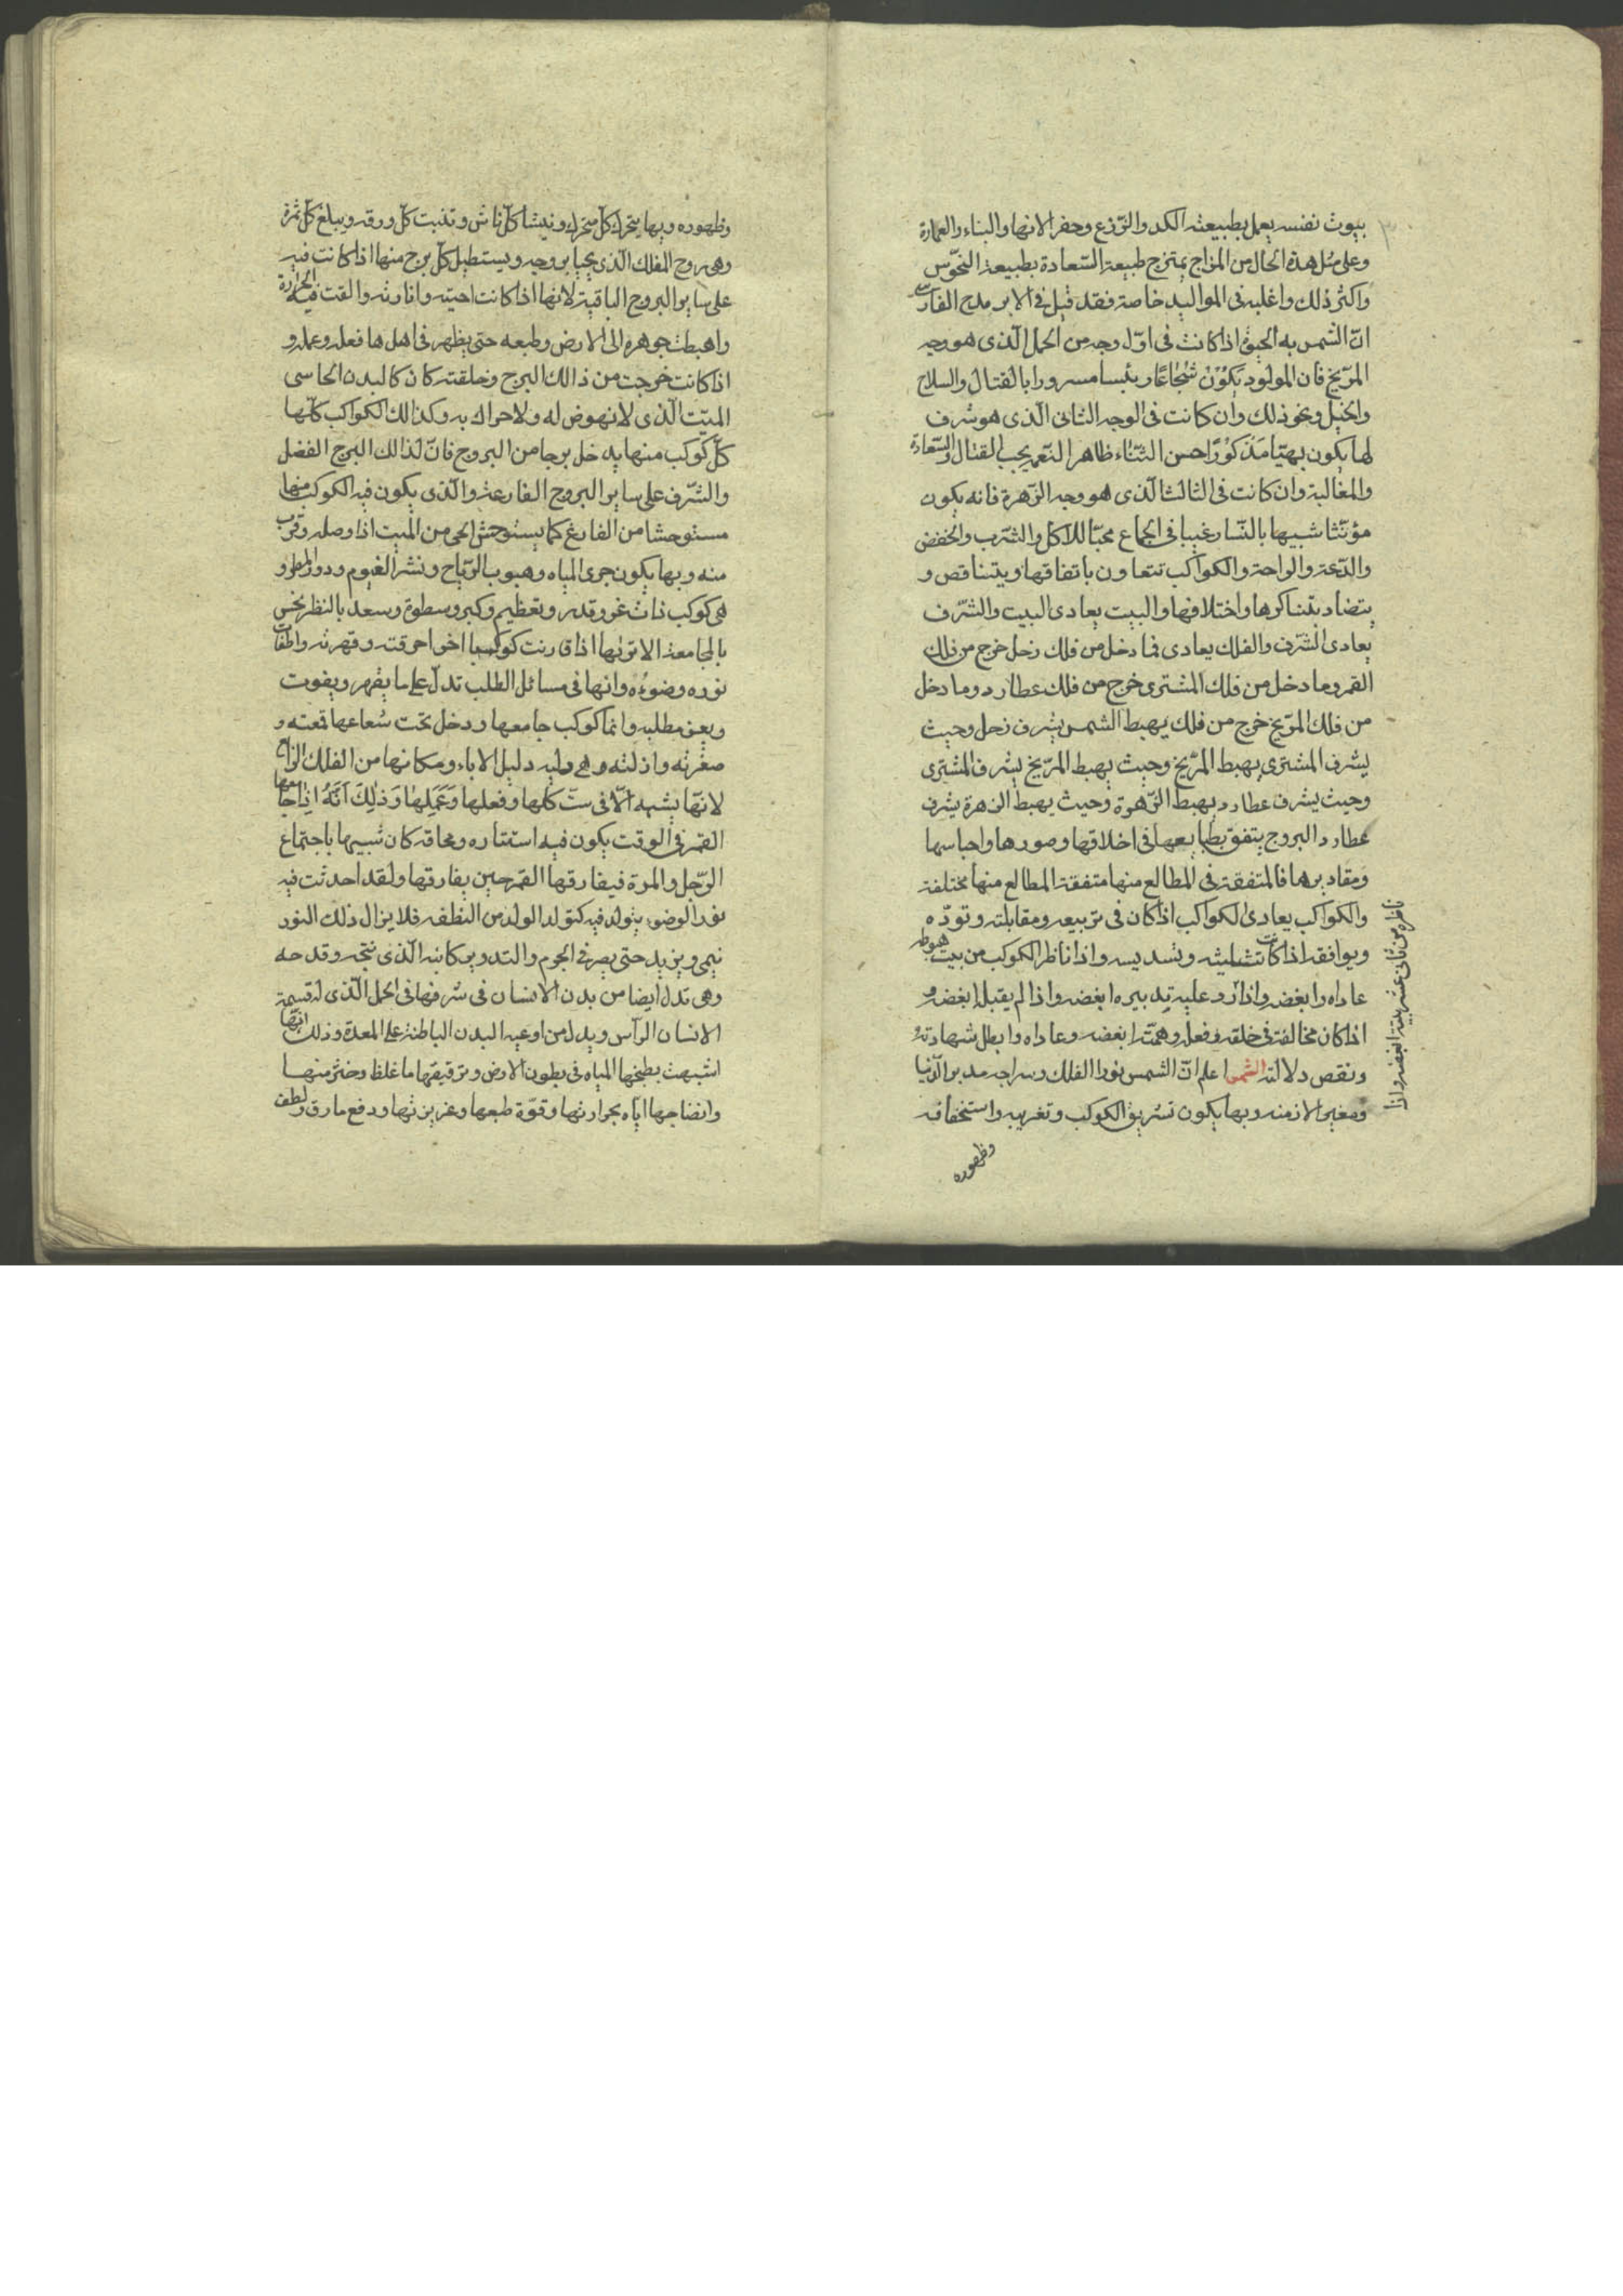 بيوت نفسه يعمل بطبيعته الكد والزرع وحفر الانهار والبناء والعمارة
وعلى مثل هذه الحال من المزاج يمتزج طبيعة السّعادة بطبيعة النحوس
واكثر ذلك واغلبه فى المواليد خاصة فقد قيل فى الابر
انّ الشمس به اذا كانت فى اوّل وجه من الحمل الّذى هو وجه
المرّيخ فان المولود يَكُوْنُ شُجَاعًا رئيسا مسرورا بالقتال والسلاح
والخيل ونحو ذلك وان كانت فى الوجه الثانى الّذى هو شرف
لها يكون بهيّا مَذكُوْرًا حسن الثناء ظاهر النّعم يحب القتال والسّعادة
والمغالبة وان كانت فى الثالث الّذى هو وجه الزّهرة فانه يكون
مؤنّثا شبيها بالنّسا رغيبا فى الجماع محبّا للاكل والشرب والخفض
والدّعة والراحة والكواكب تتعاون باتفاقها ويتناقص و
يتضاد بتناكرها واختلافها والبيت يعادى البيت والشّرف
يعادى الشّرف والفلك يعادى فما دخل من فلك زحل خرج من فلك
القمر وما دخل من فلك المشترى خرج من فلك عطارد وما دخل
من فلك المرّيخ خرج من فلك يهبط الشمس يشرف زحل وحيث
يشرف المشترى يهبط المرّيخ وحيث يهبط المرّيخ يشرف المشترى
وحيث يشرف عطارد يهبط الزّهرة وحيث يهبط الزهرة يشرف
عطارد البروج يتفق بطبايعها فى اخلاقها وصورها واجناسها
ومقاديرها فالمتفقة فى المطالع منها متفقة المطالع منها مختلفة
والكواكب يعادى الكواكب اذا كان فى تربيعه ومقابلته وتودّه
ويوافقه اذا كانت تثليثه وتسديسه واذا ناظر الكوكب من بيت هبوطه
عاداه وابغضه واذا رد عليه تدبيره ابغضه واذا لم يقبل ابغضه و
اذا كان مخالفته فى خلقه وفعله وهمّته ابغضه وعاداه وابطل شهادته
ونقص دلالته الشمس اعلم انّ الشمس نور الفلك وسراجه مدبر الدّنيا
ومغير الازمنه وبها يكون تشريق الكوكب وتغريبه واستخفافه
وظهوره
ناظره من ثانى عشر بيته ابغضه واذا
وظهوره وبها يتحرك كلّ متحرك وينشا كلّ ناش وتنبت كلّ ورقه ويبلغ كلّ ثمرة
وهى روح الفلك الّذى يحيا بروحه ويستطيل كلّ برج منها اذا كانت فيه
على ساير البروج الباقية لانها اذا كانت احيته وانارته والقت فيه الحرارة
واهبطت جوهره الى الارض وطبعه حتى يظهر فى اهلها فعله وعمله و
اذا كانت خرجت من ذالك البرج وخلفته كان كالبدن الجاسى
الميّت الّذى لا نهوض له ولا حراك به وكذالك الكواكب كلّها
كلّ كوكب منها يدخل برجا من البروج فانّ لذالك البرج الفضل
والشّرف على ساير البروج الفارغة والّذى يكون فيه الكوكب منها
مستوحشا من الفارغ كما يستوحش الحى من الميت اذا وصله وقرب
منه وبها يكون جرى المياه وهبوب الرّياح ونشر الغيوم ودور المطر و
هى كوكب ذات غور وقدر وتعظيم وكبر وسطوة وسعد بالنظر نحس
بالمجامعة الا تريها اذا قارنت كوكبا اخر احرقته وقهرته واطفات
نوره وضوءه وانها فى مسائل الطلب تدلّ على ما يقهر ويفوت
ويعز مطلبه وانما كوكب جامعها ودخل تحت شعاعها قمعته و
صغرته واذلته وهى دليل الاباء ومكانها من الفلك الرابع
لانّها يشبهه الّا فى ستّ كلها وفعلها وَعَمَلِهَا وَذٰلِكَ اَنَّهُ اِذَا جَامعها
القمر فى الوقت يكون فيه استتاره ومحاقه كان شبيها باجتماع
الرّجل والمرة فيفارقها القمر حين يفارقها ولقد احدثت فيه
نور الوضوء يتولد فيه كتولد الولد من النطفه فلا يزال ذلك النور
ينمى ويزيد حتى يصر فى الجرم والتدوير كابيه الّذى نتجه وقدحه
وهى تدل ايضا من بدن الانسان فى شرفها فى الحمل الّذى له قسمة
الانسان الرأس ويدل من اوعيه البدن الباطنة على المعدة وذلك انّها
اشبهت بطبخها المياه فى بطون الارض وترقيقها ما غلظ وخثر منها
وانضاجها ايّاه بحرارتها وقوّة طبعها وغريزتها ودفع ما رق ولطف